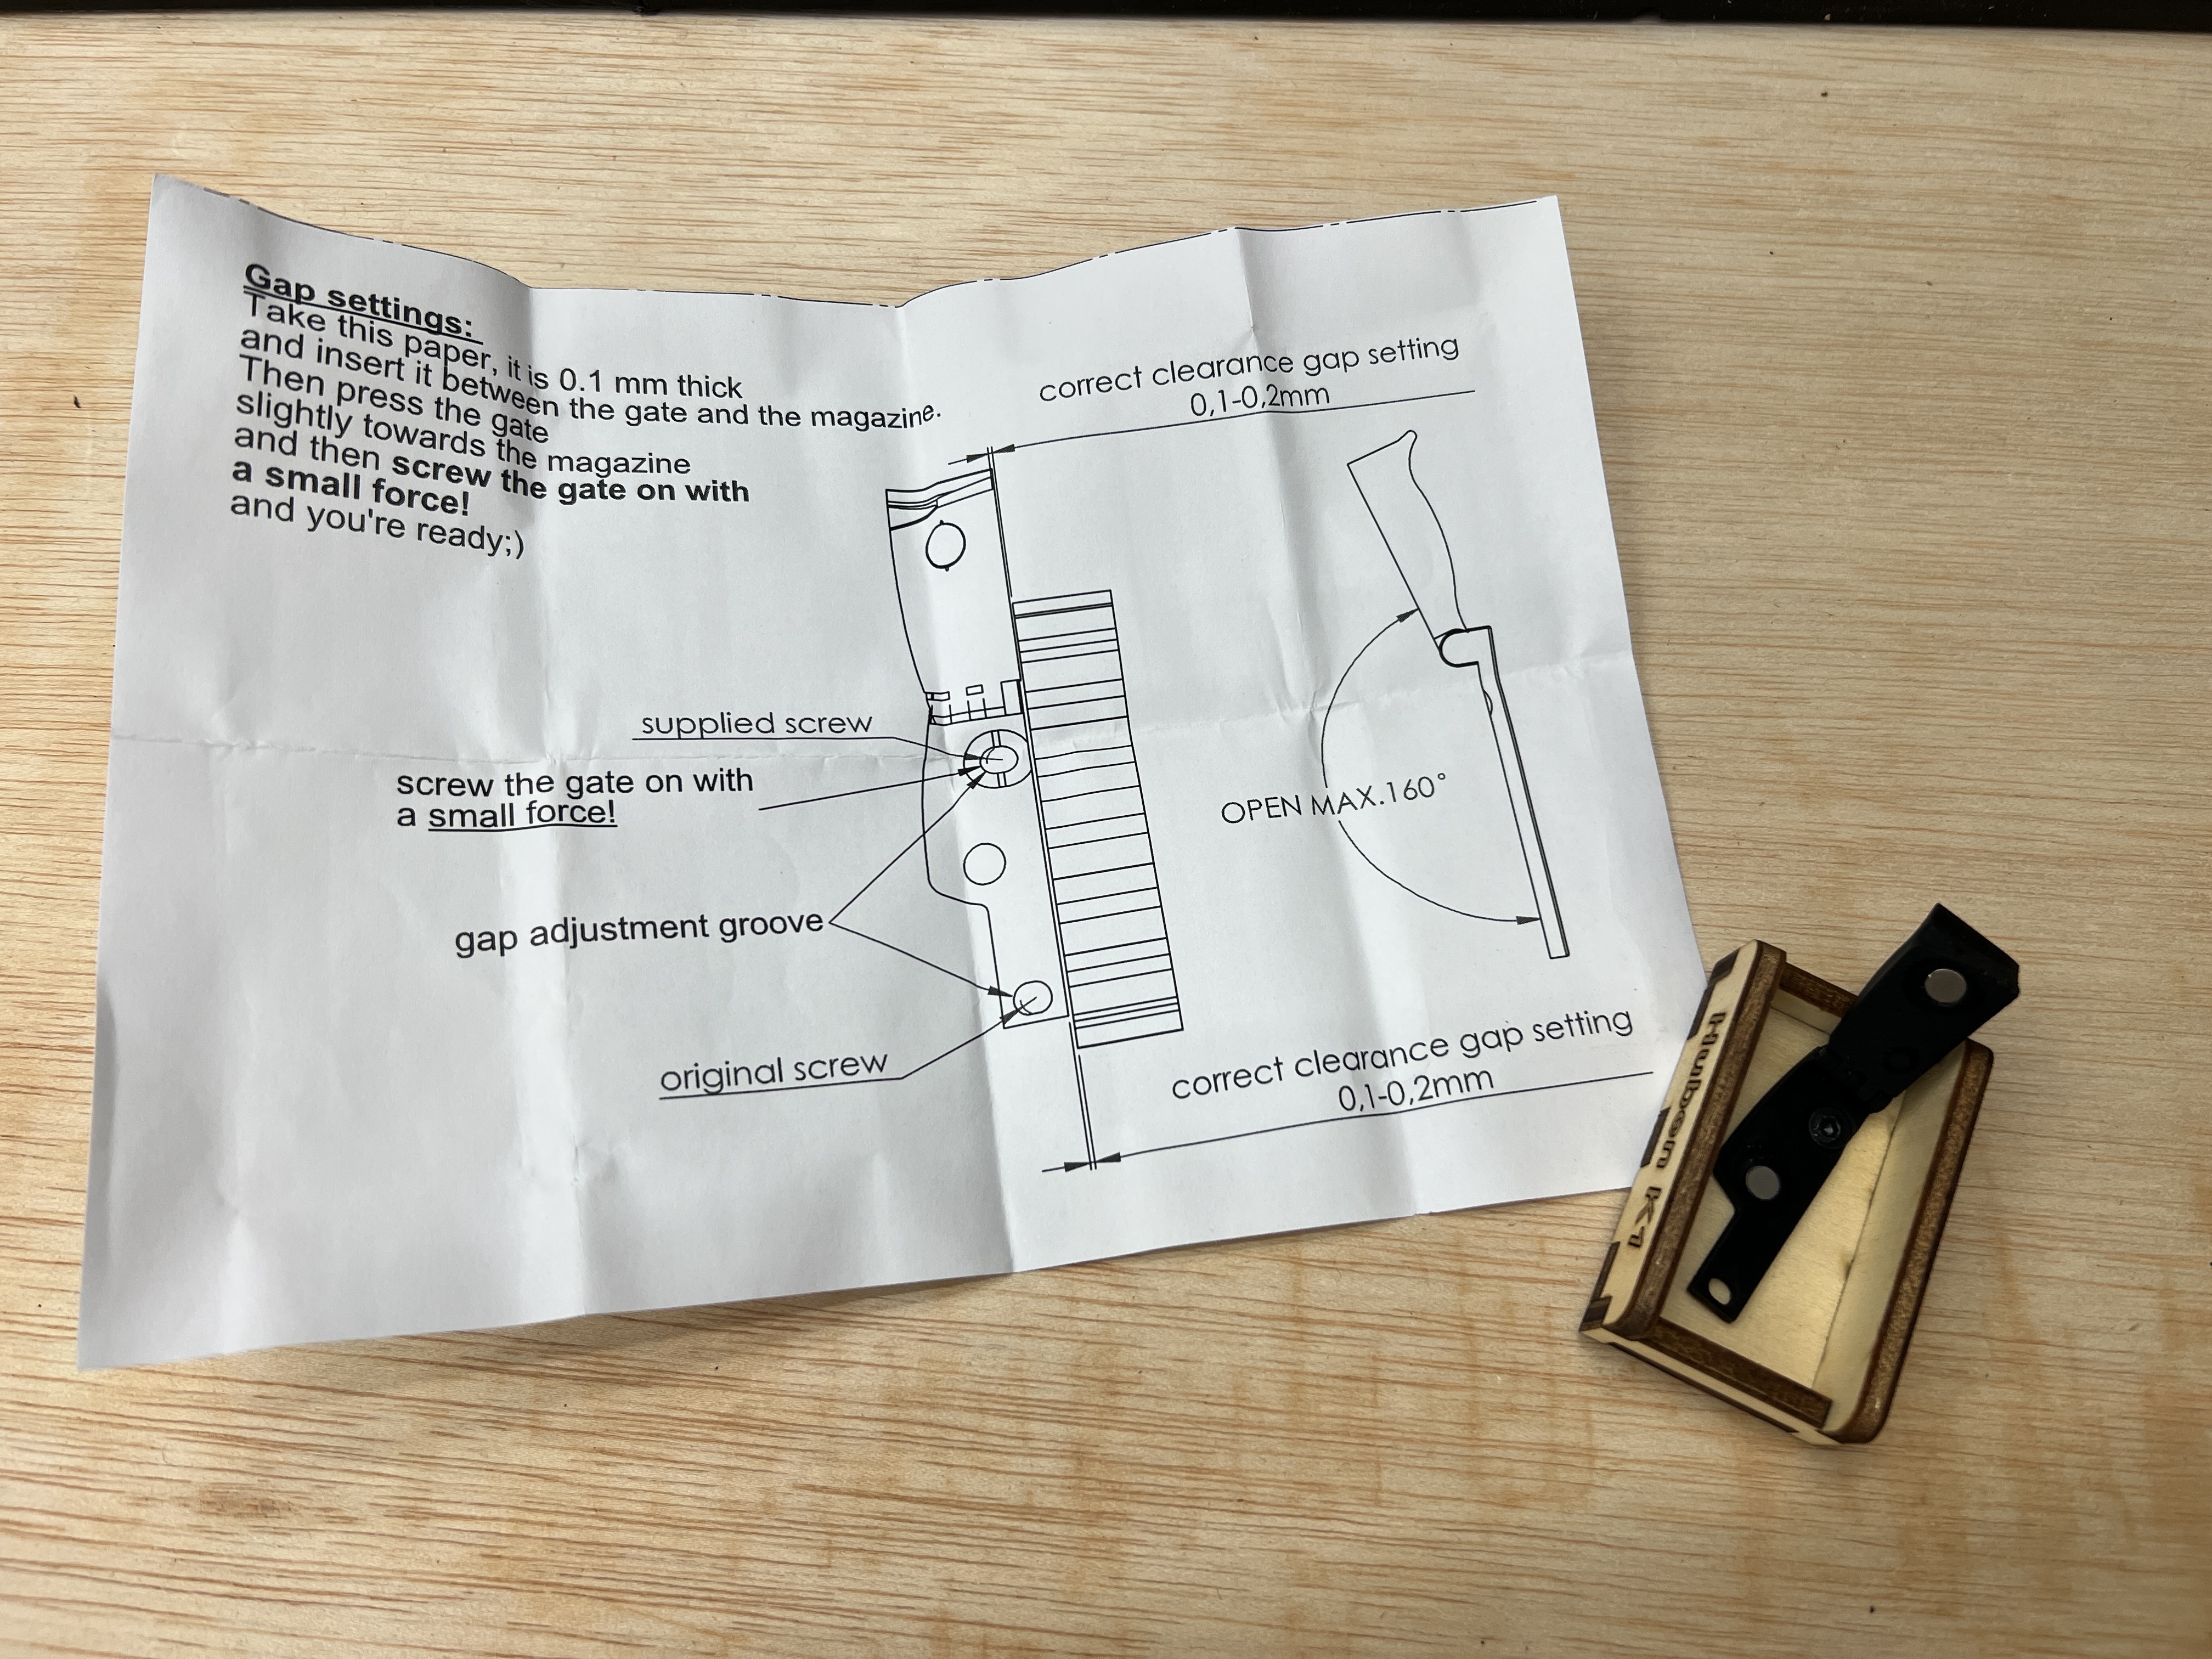 Gap settings:
Take this paper, it is 0.1 mm thick
and insert it between the gate and the magazine.
Then press the gate
slightly towards the magazine
and then screw the gate on with
a small force!
and you're ready;)
correct clearance gap setting
0,1-0,2mm
supplied screw
screw the gate on with
a small force!
OPEN MAX.160°
gap adjustment groove
original screw
correct clearance gap setting
0,1-0,2mm
Huben K1